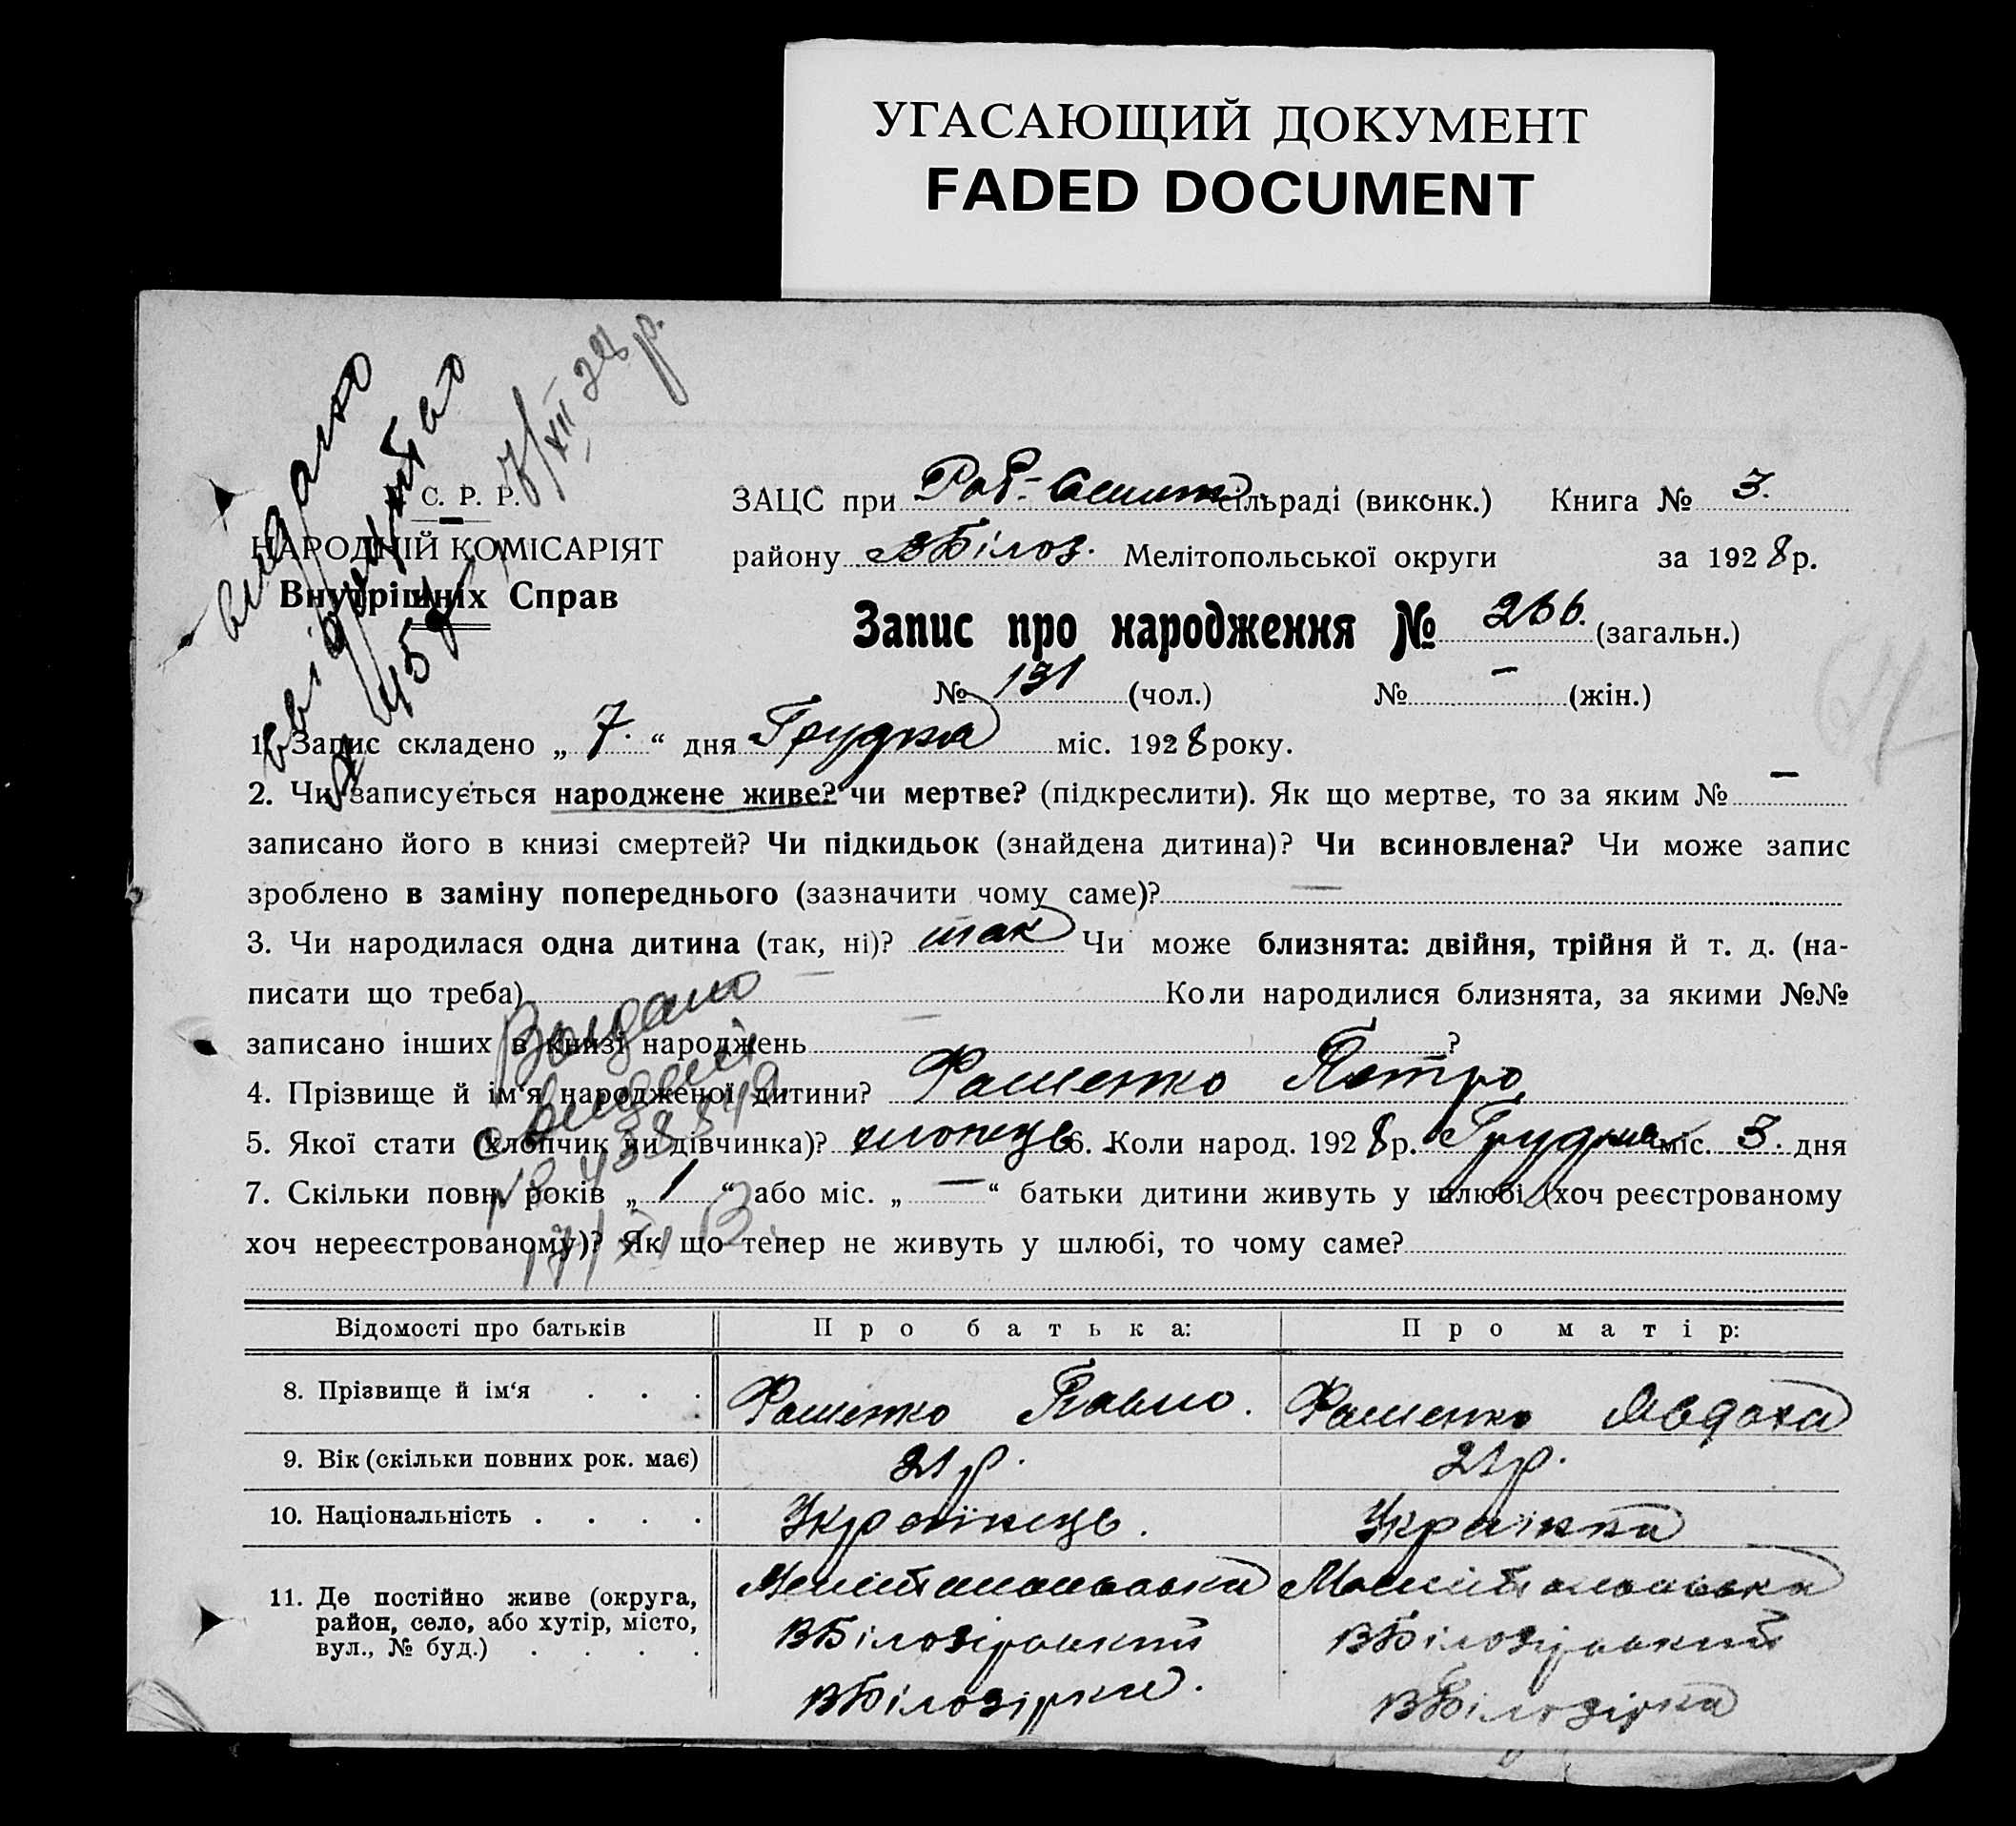 УГАСАЮЩИЙ ДОКУМЕНТ
FADED DOCUMENT
видано
7/XII 28 р.
С. Р. Р.
НАРОДНІЙ КОМІСАРІЯТ
Внутрішніх Справ
ЗАЦС при Роб- сільраді (виконк.) Книга № 3.
району ВБілоз. Мелітопольської округи за 1928 р.
Запис про народження № 266. (загальн.)
№ 131 (чол.) № — (жін.)
1. Запис складено „ 7. “ дня Грудня міс. 1928 року.
2. Чи записується народжене живе? чи мертве? (підкреслити). Як що мертве, то за яким № —
записано його в книзі смертей? Чи підкидьок (знайдена дитина)? Чи всиновлена? Чи може запис
зроблено в заміну попереднього (зазначити чому саме)? —
3. Чи народилася одна дитина (так, ні)? так Чи може близнята: двійня, трійня й т. д. (на-
писати що треба) — Коли народилися близнята, за якими №№
записано інших в книзі народжень — ?
Видано
4. Прізвище й ім‘я народженої дитини? Фащенко Петро
5. Якої стати (хлопчик чи дівчинка)? хлопець 6. Коли народ. 1928 р. Грудня міс. 3. дня
7. Скільки повн. років „ 1 “ або міс. „ — “ батьки дитини живуть у шлюбі (хоч реєстрованому
хоч нереєстрованому)? Як що тепер не живуть у шлюбі, то чому саме?
Відомості про батьків Про батька: Про матір:
8. Прізвище й ім‘я . . . Фащенко Павло. Фащенко Явдоха
9. Вік (скільки повних рок. має) 21 р. 21 р.
10. Національність . . . . Українець. Українка
11. Де постійно живе (округа, Мелітопольська Мелітопольська
район, село, або хутір, місто, ВБілозірський ВБілозірський
вул., № буд.) . . . . ВБілозірка. ВБілозірка